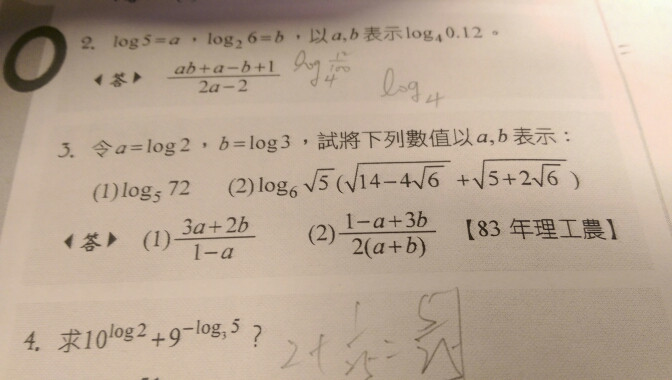 2. log5=a，log₂6=b，以a,b表示log₄0.12。
◀答▶ (ab+a−b+1)/(2a−2) log₄ 12/100 log₄
3. 令a=log2，b=log3，試將下列數值以a,b表示：
(1)log₅72 (2)log₆√5(√(14−4√6)+√(5+2√6))
◀答▶ (1)(3a+2b)/(1−a) (2)(1−a+3b)/(2(a+b)) 【83 年理工農】
4. 求10^(log2)+9^(−log₃5)？ 2+1/25=5/25